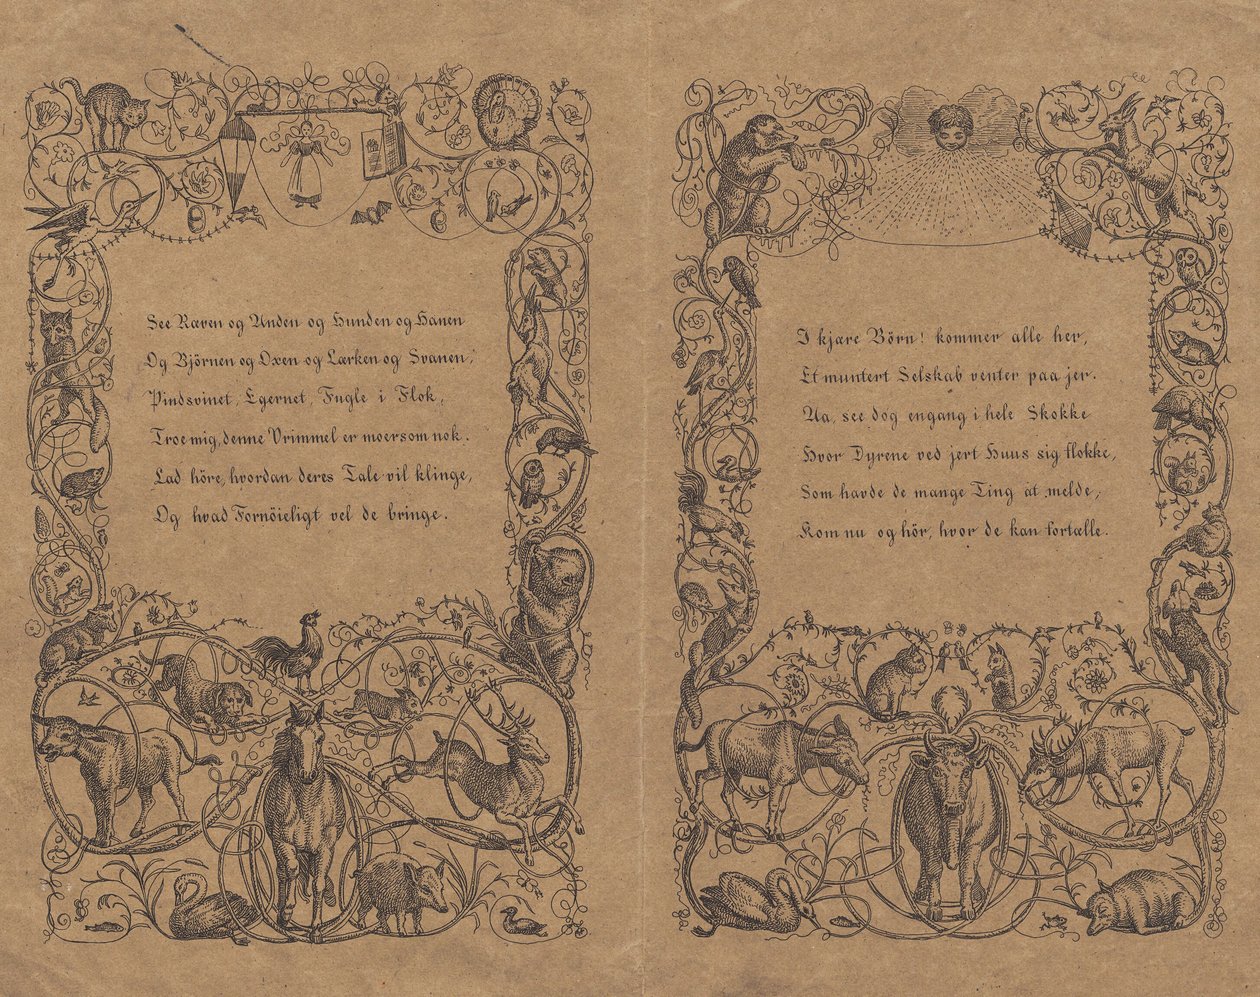 See Ræven og Anden og Hunden og Hanen
Og Björnen og Oxen og Lærken og Svanen,
Pindsvinet, Egernet, Fugle i Flok,
Troe mig, denne Vrimmel er moersom nok.
Lad höre, hvordan deres Tale vil klinge,
Og hvad Fornöieligt vel de bringe.
I kjære Börn! kommer alle her,
Et muntert Selskab venter paa jer.
Aa, see dog engang i hele Skokke
Hvor Dyrene ved jert Huus sig flokke,
Som havde de mange Ting at melde,
Kom nu og hör, hvor de kan fortælle.